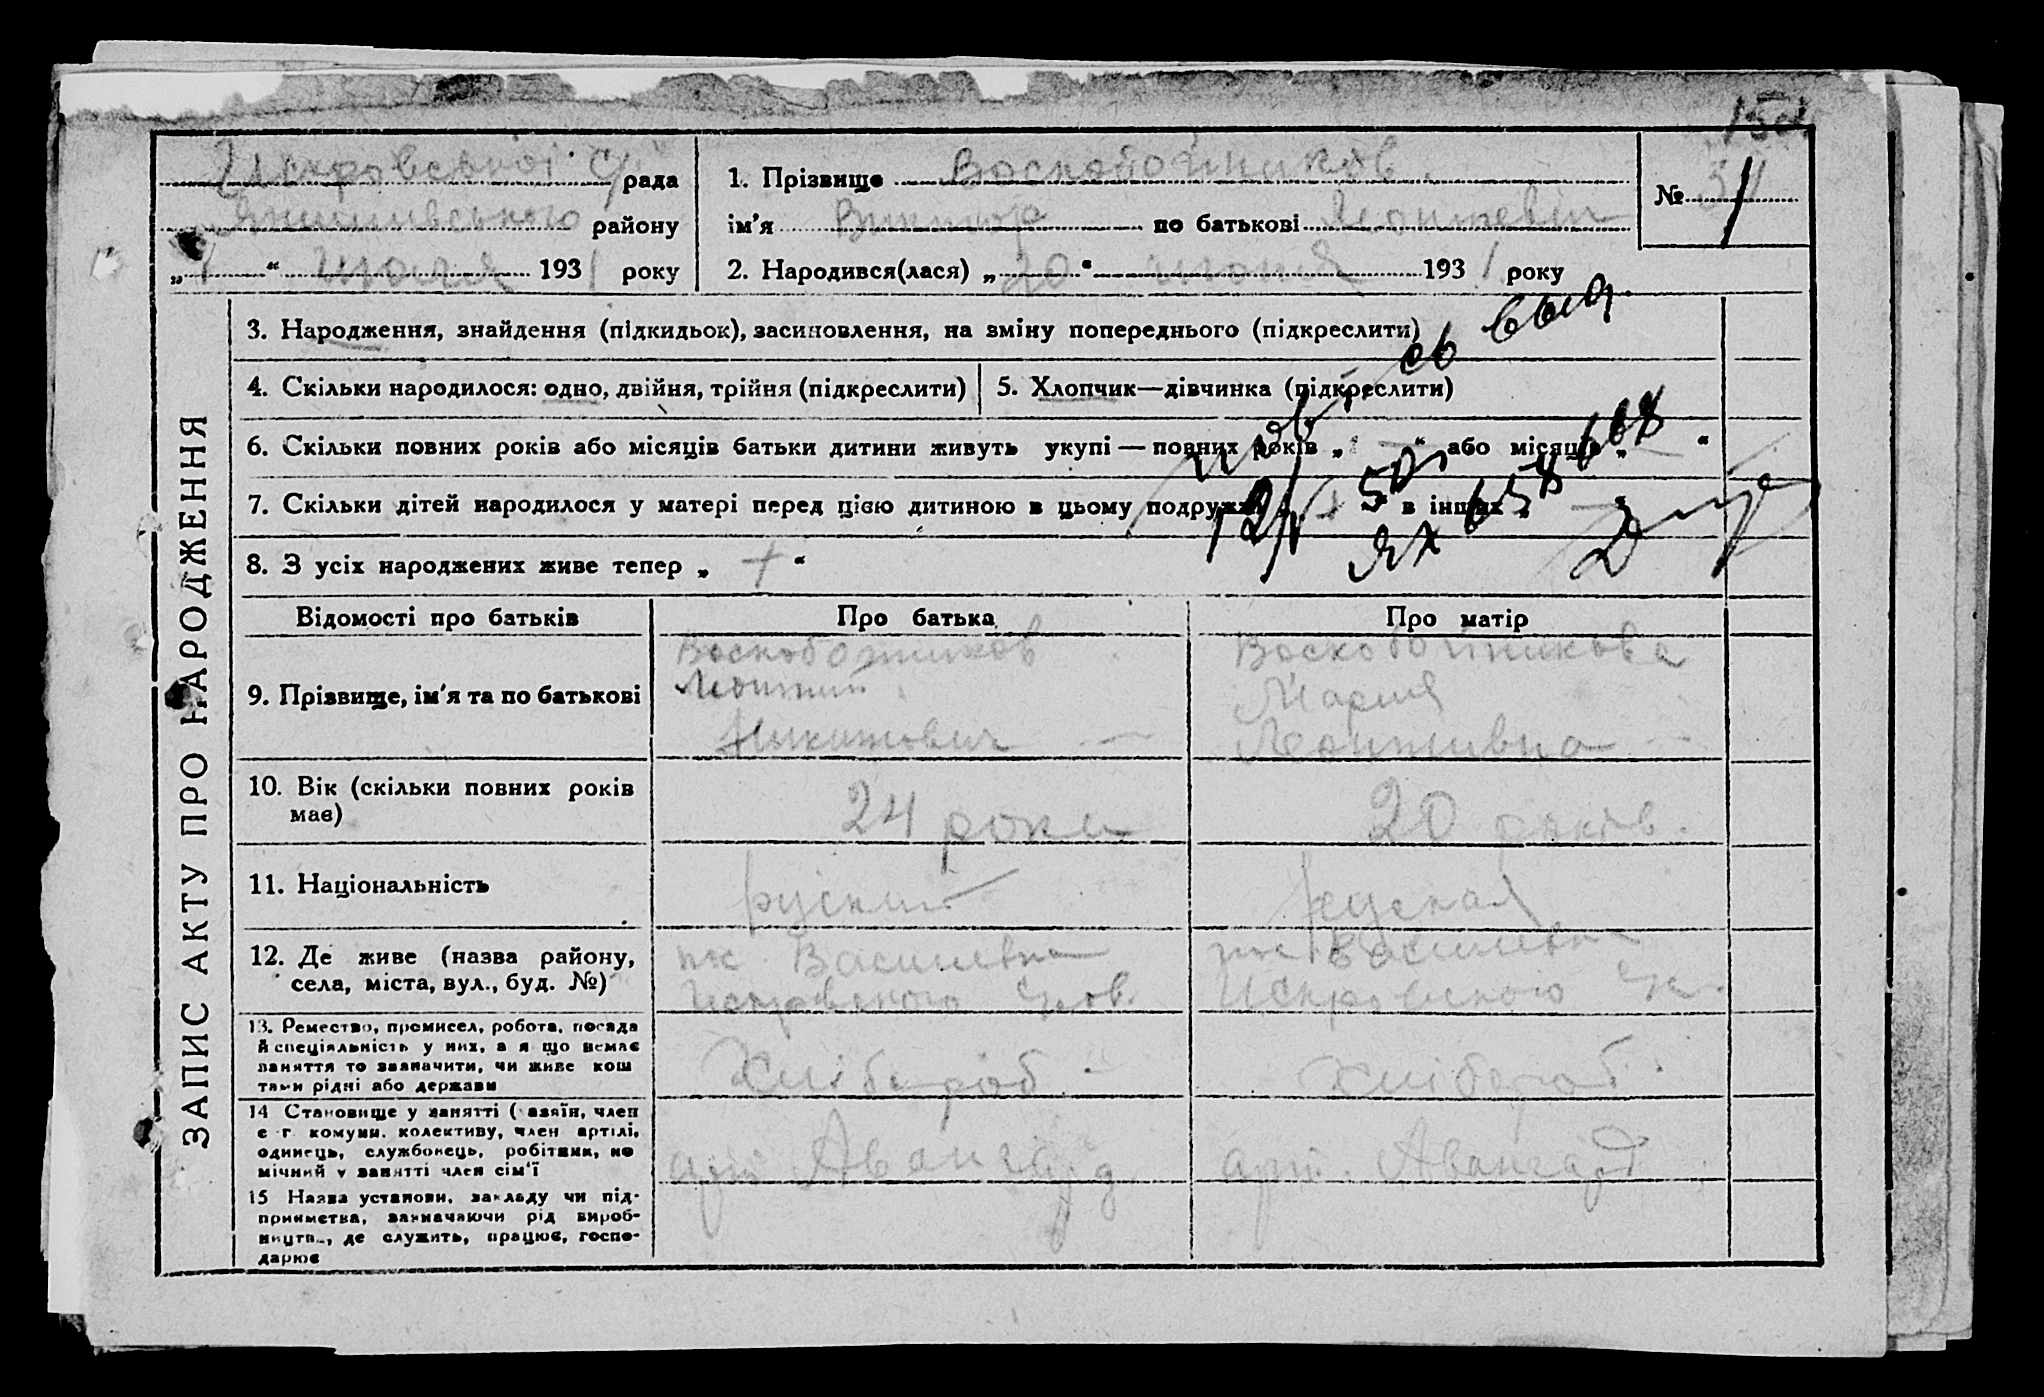 Искровської с/рада
району
„ 4 “ июля 1931 року
1. Прізвище Воскобойников
ім’я Виктор по батькові
2. Народився(лася) „ 20 “ июня 1931 року
№ 31
ЗАПИС АКТУ ПРО НАРОДЖЕННЯ
3. Народження, знайдення (підкидьок), засиновлення, на зміну попереднього (підкреслити)
4. Скільки народилося: одно, двійня, трійня (підкреслити)
5. Хлопчик—дівчинка (підкреслити)
6. Скільки повних років або місяців батьки дитини живуть укупі — повних років „ — “ або місяців „ — “
7. Скільки дітей народилося у матері перед цією дитиною в цьому подружжі в інших „ —
8. З усіх народжених живе тепер „ + “
Відомості про батьків
Про батька
Про матір
9. Прізвище, ім’я та по батькові
Воскобойников
Никитович —
Воскобойникова
Мария
10. Вік (скільки повних років має)
24 роки
20 років.
11. Національність
руский
руская
12. Де живе (назва району,
села, міста, вул., буд. №)
пк Василевка
Искровского
пк Василевка
Искровского
13. Ремество, промисел, робота, посада
й спеціяльність у них, а я що немає
заняття то зазначити, чи живе кош
тами рідні або держави
Хлібороб
Хлібороб
14 Становище у занятті ( азяїн, член
с г комуни, колективу, член артілі,
одинець, службовець, робітник, по
мічний у занятті член сім’ї
арт. Авангард
арт. Авангард
15 Назва установи, закладу чи під-
приимства, зазначаючи рід вироб-
ництв, де служить, працює, госпо-
дарює